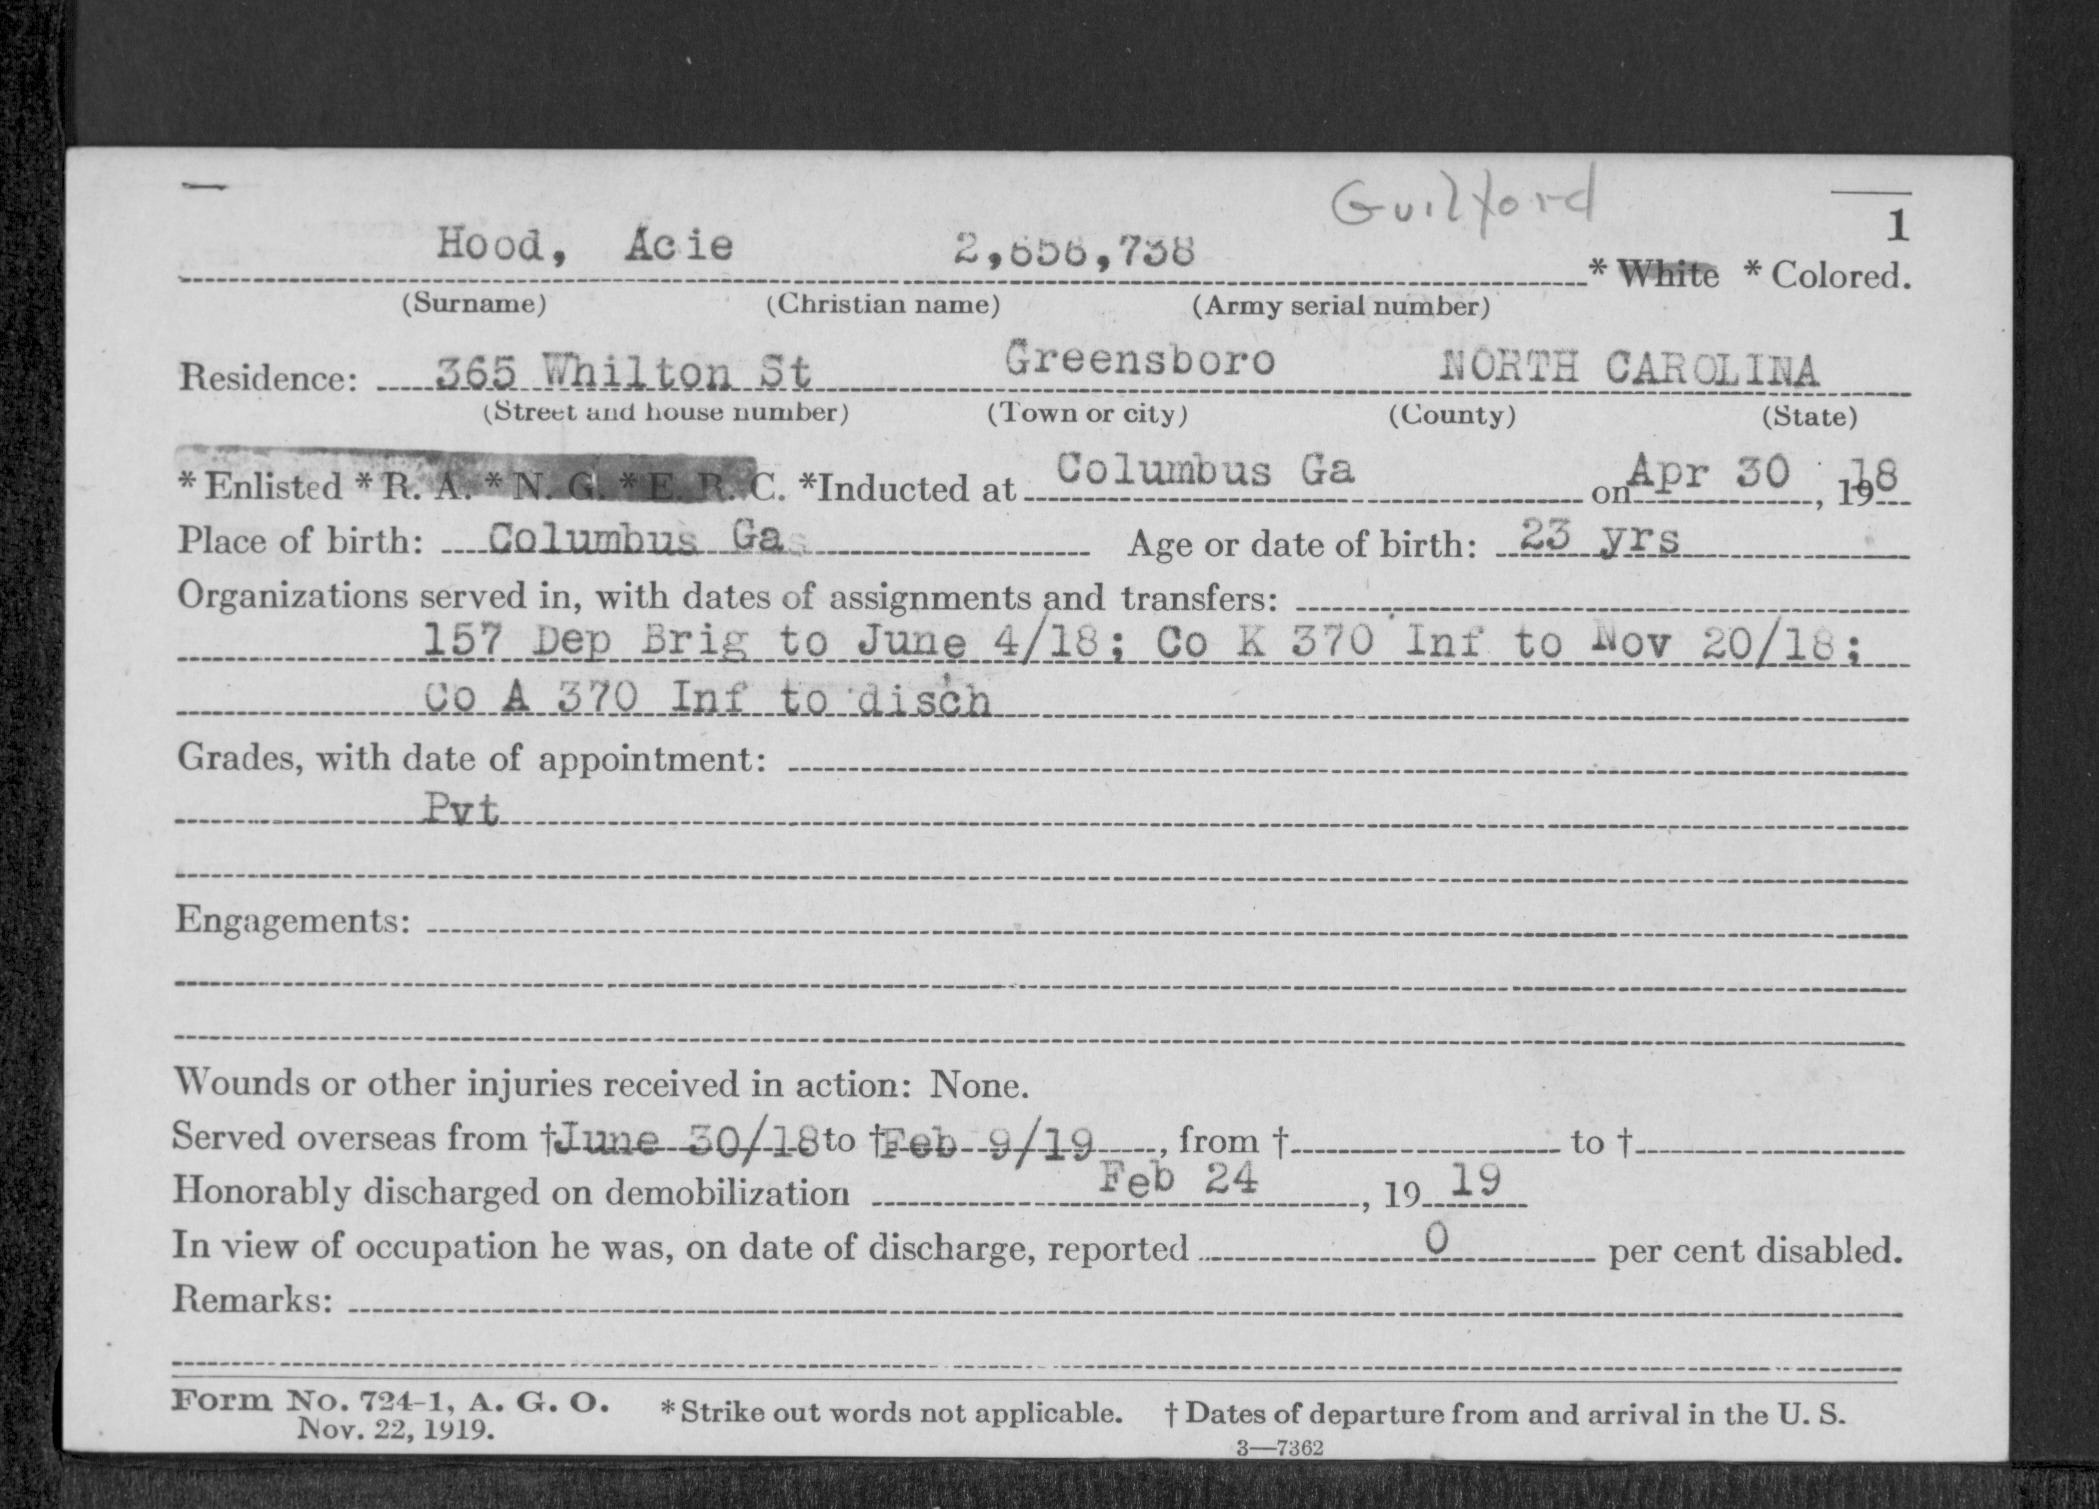 Guilford
1
Hood, Acie 2,656,738 * White * Colored.
(Surname) (Christian name) (Army serial number)
Residence: 365 Whilton St Greensboro NORTH CAROLINA
(Street and house number) (Town or city) (County) (State)
* Enlisted * R. A. * N. G. * E. R. C. *Inducted at Columbus Ga on Apr 30, 1918
Place of birth: Columbus Ga Age or date of birth: 23 yrs
Organizations served in, with dates of assignments and transfers:
157 Dep Brig to June 4/18; Co K 370 Inf to Nov 20/18;
Co A 370 Inf to disch
Grades, with date of appointment:
Pvt
Engagements:
Wounds or other injuries received in action: None.
Served overseas from † June 30/18 to † Feb 9/19, from † to †
Honorably discharged on demobilization Feb 24, 19 19
In view of occupation he was, on date of discharge, reported 0 per cent disabled.
Remarks:
Form No. 724-1, A. G. O. * Strike out words not applicable. † Dates of departure from and arrival in the U. S.
Nov. 22, 1919.
3—7362